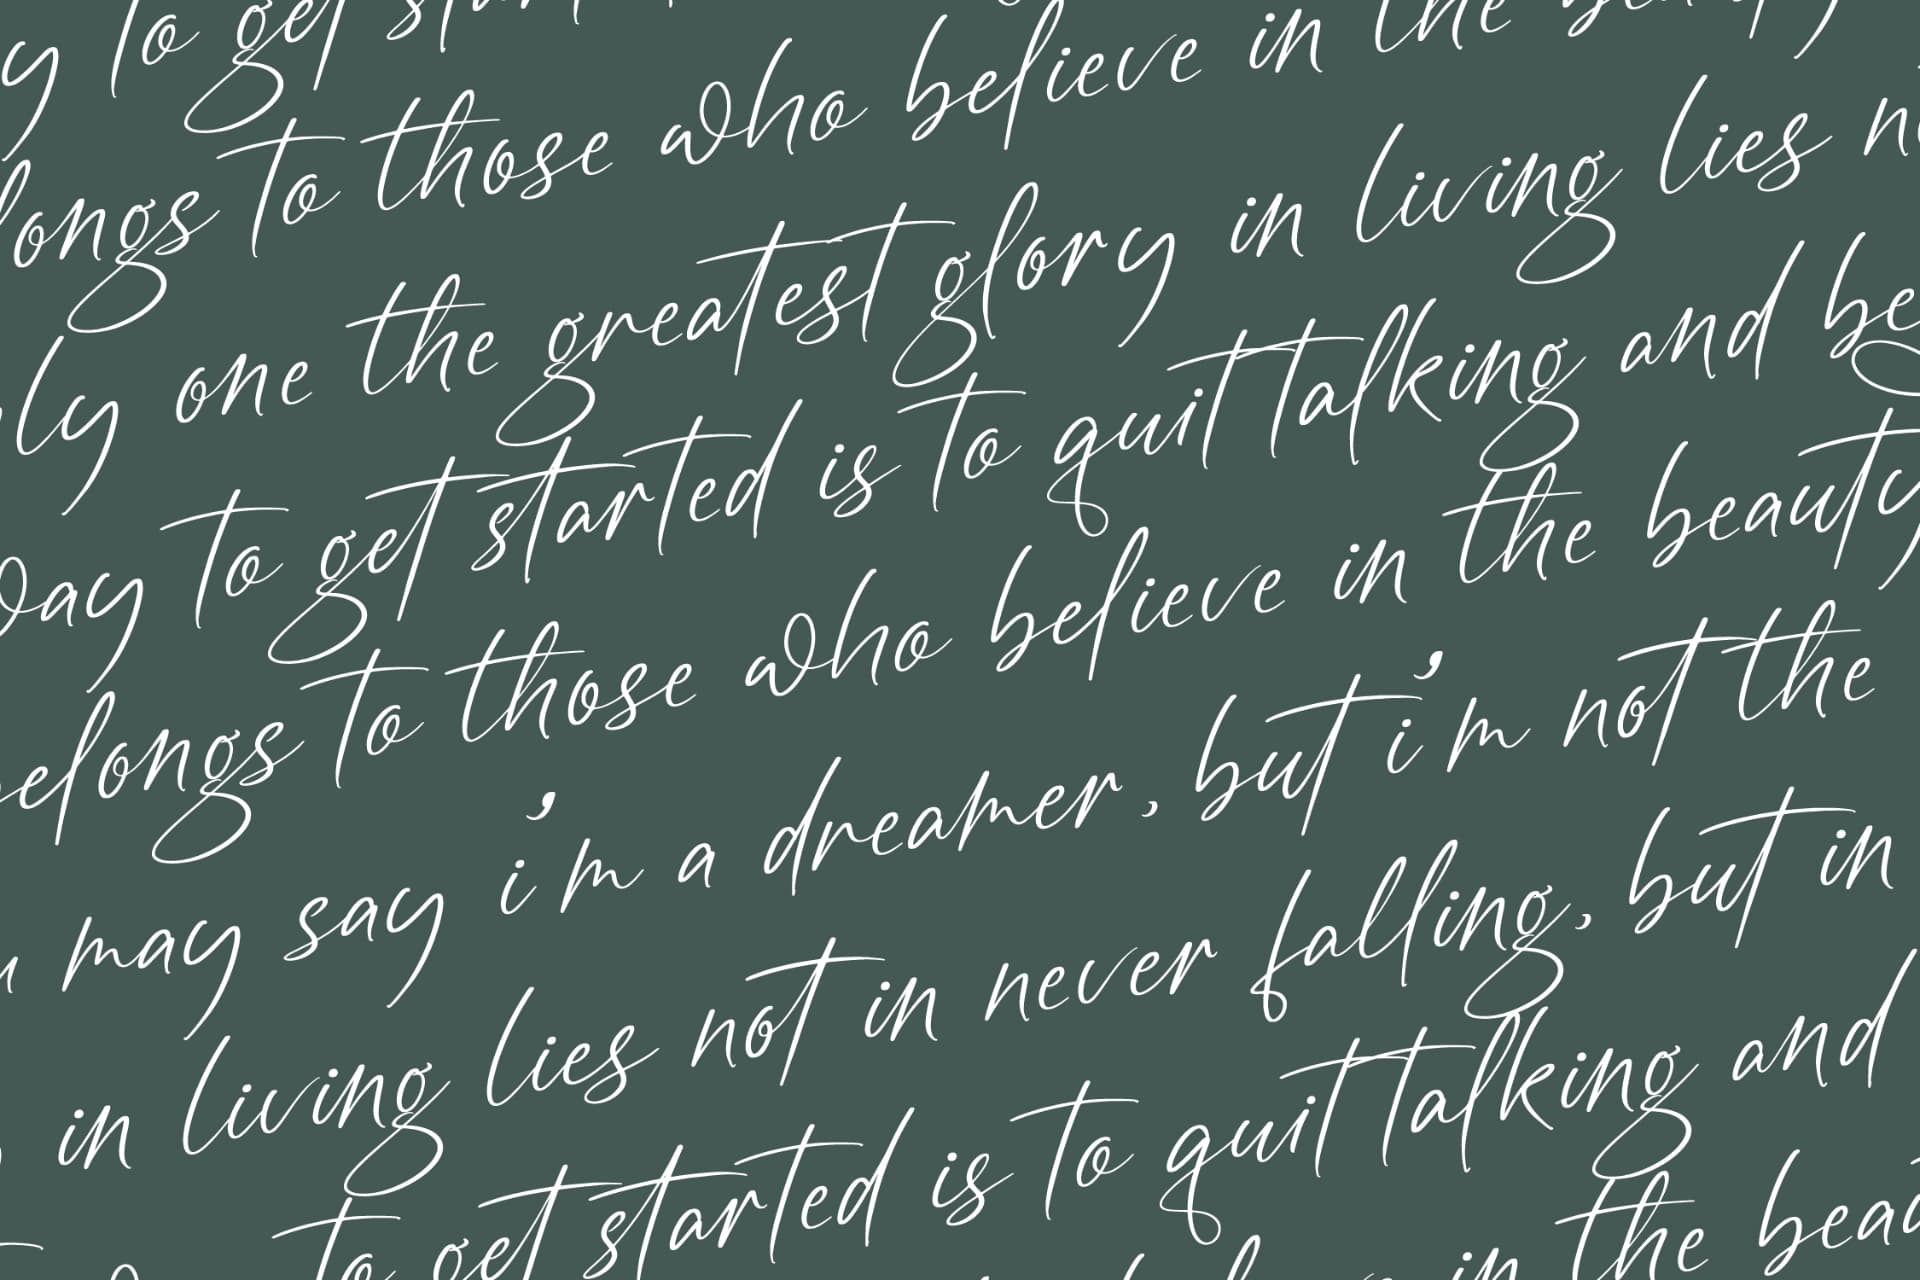 y to get
longs to those who believe in the
ly one the greatest glory in living lies
way to get started is to quit talking and be
belongs to those who believe in the beauty
may say i'm a dreamer, but i'm not the
in living lies not in never falling, but in
to get started is to quit talking and
in the beau